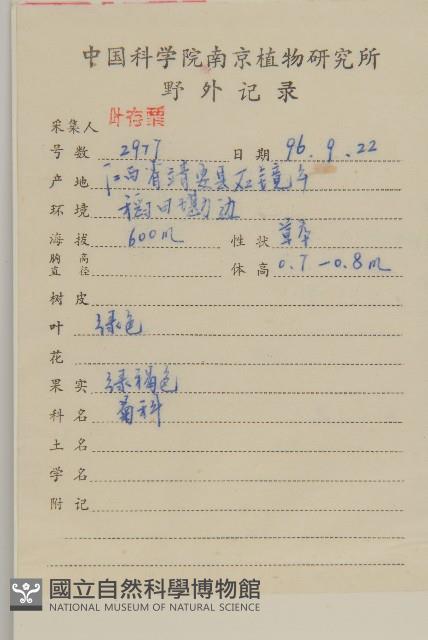 中国科学院南京植物研究所
野外记录
采集人 叶存粟
号数 2977 日期 96.9.22
产地 江西省靖安县石镜
环境 稻田塝边
海拔 600m 性状 草本
胸高直径 体高 0.7-0.8m
树皮
叶 绿色
花
果实 绿褐色
科名 菊科
土名
学名
附记
國立自然科學博物館
NATIONAL MUSEUM OF NATURAL SCIENCE